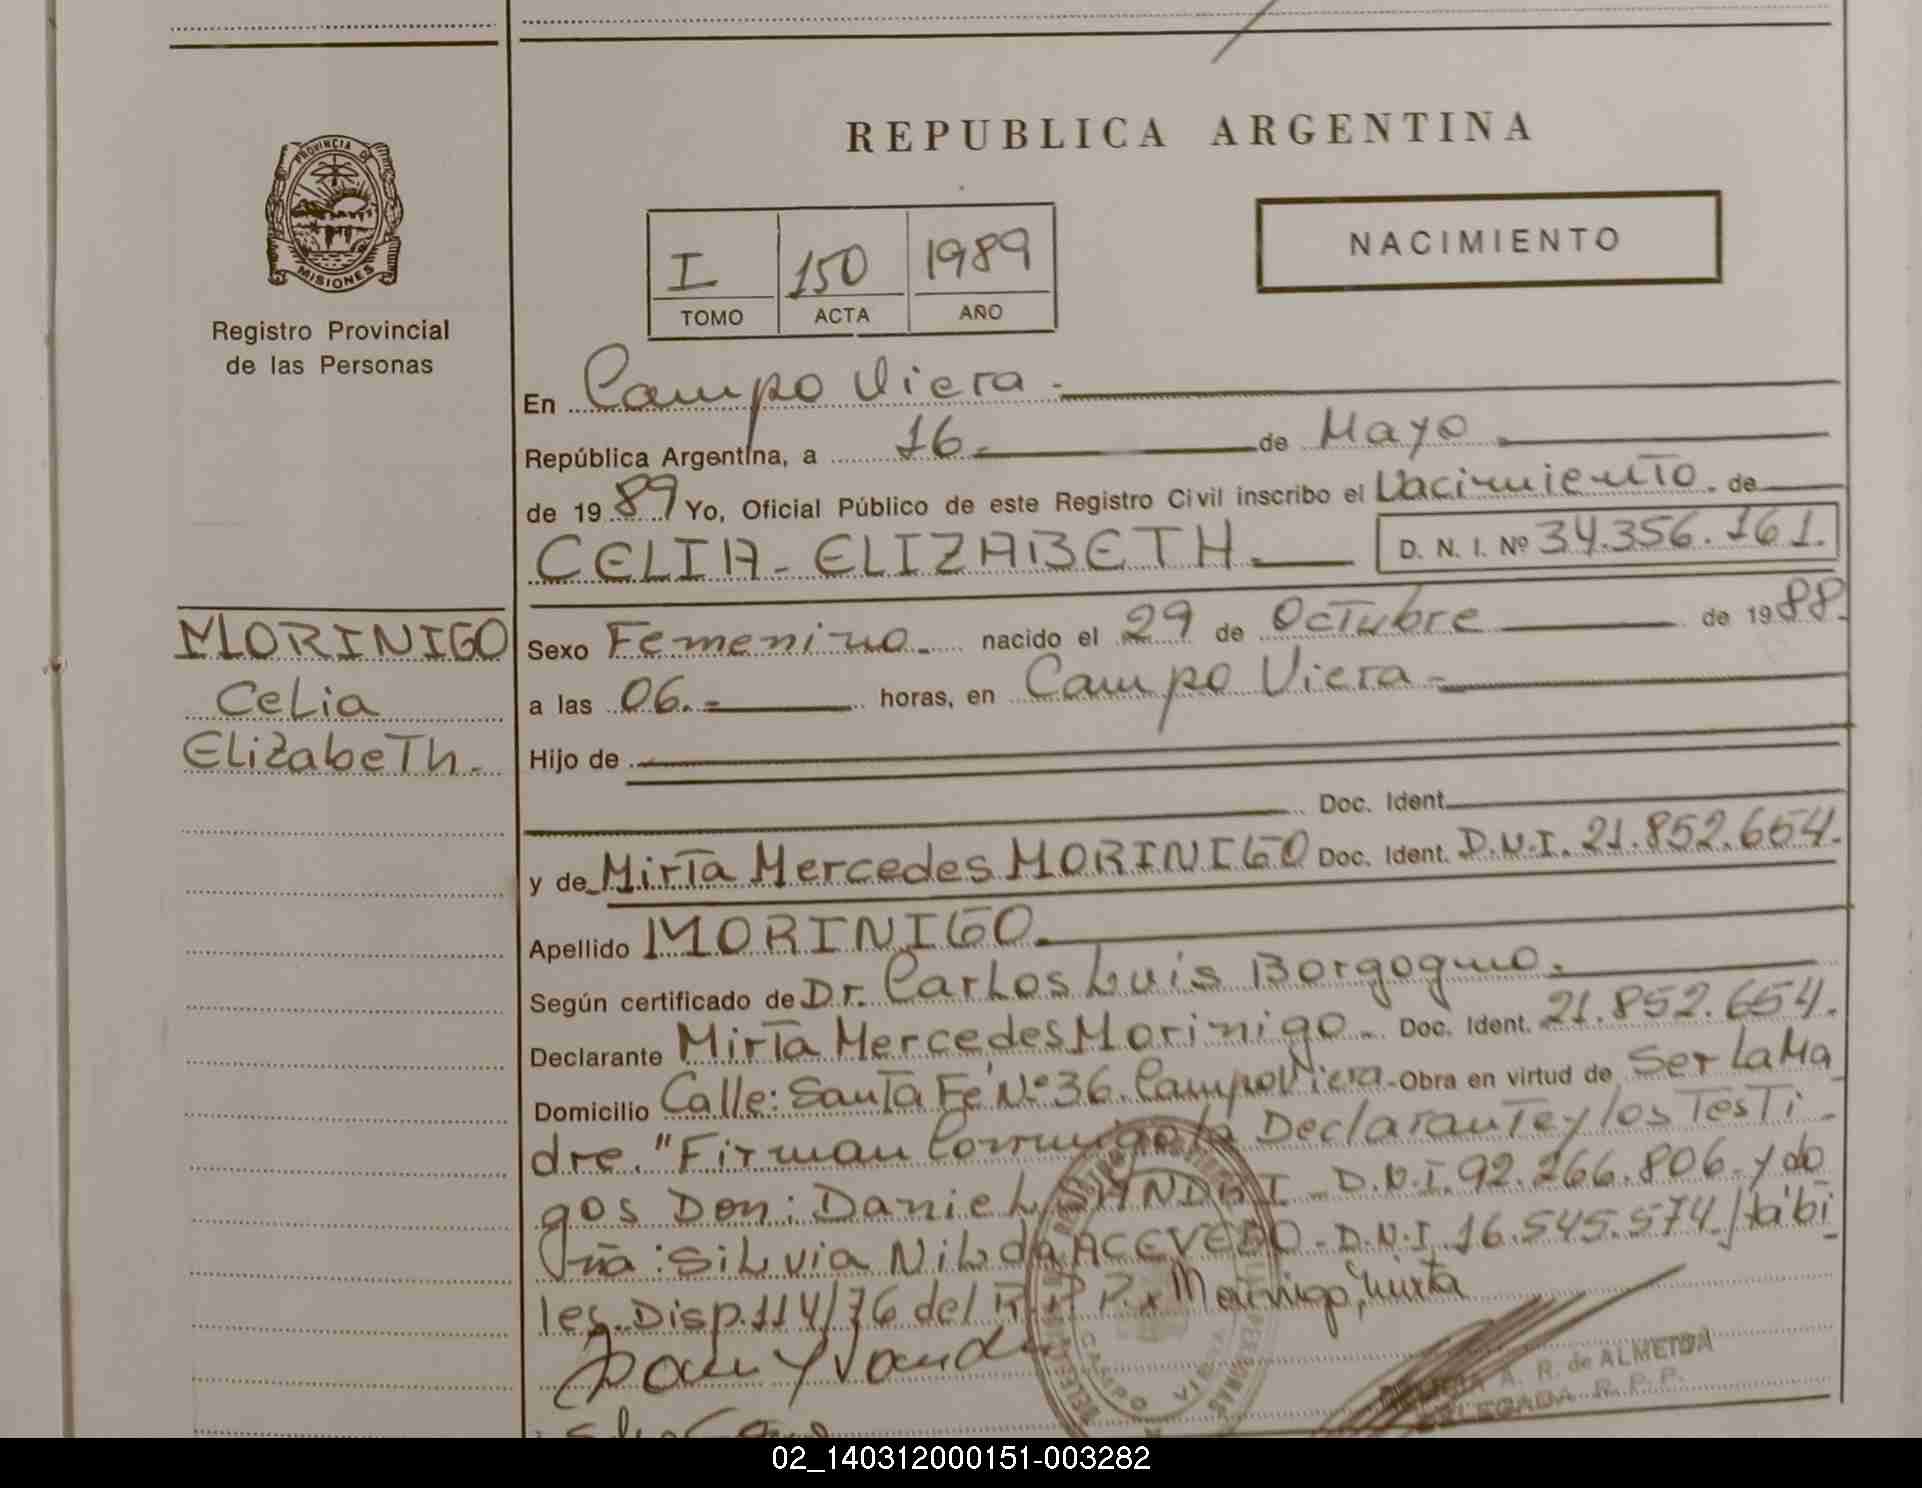 REPUBLICA ARGENTINA
PROVINCIA DE
MISIONES
Registro Provincial
de las Personas
I 150 1989
TOMO ACTA AÑO
NACIMIENTO
En Campo Viera.
República Argentina, a 16. de Mayo
de 1989 Yo, Oficial Público de este Registro Civil inscribo el Nacimiento. de
CELIA-ELIZABETH. D. N. I. Nº 34.356.161.
MORINIGO
Celia
Elizabeth.
Sexo Femenino. nacido el 29 de Octubre de 1988.
a las 06. horas, en Campo Viera.
Hijo de
Doc. Ident.
y de Mirta Mercedes MORINIGO Doc. Ident. D.N.I. 21.852.654.
Apellido MORINIGO.
Según certificado de Dr. Carlos Luis Borgogno.
Declarante Mirta Mercedes Morinigo. Doc. Ident. 21.852.654.
Domicilio Calle: Santa Fé Nº 36. Campo Viera. Obra en virtud de Ser la Ma
dre. "Firman Conmigo la Declarante y los Testi-
gos Don: Daniel D.N.I. 92.266.806. y do
ña: Silvia Nilda ACEVEDO. D.N.I. 16.545.574. /hábi
les. Disp. 114/76 del R.P.P. Morinigo, Mirta
CAMPO VIERA
A. R. de ALMEIDA
DELEGADA R. P. P.
02_140312000151-003282